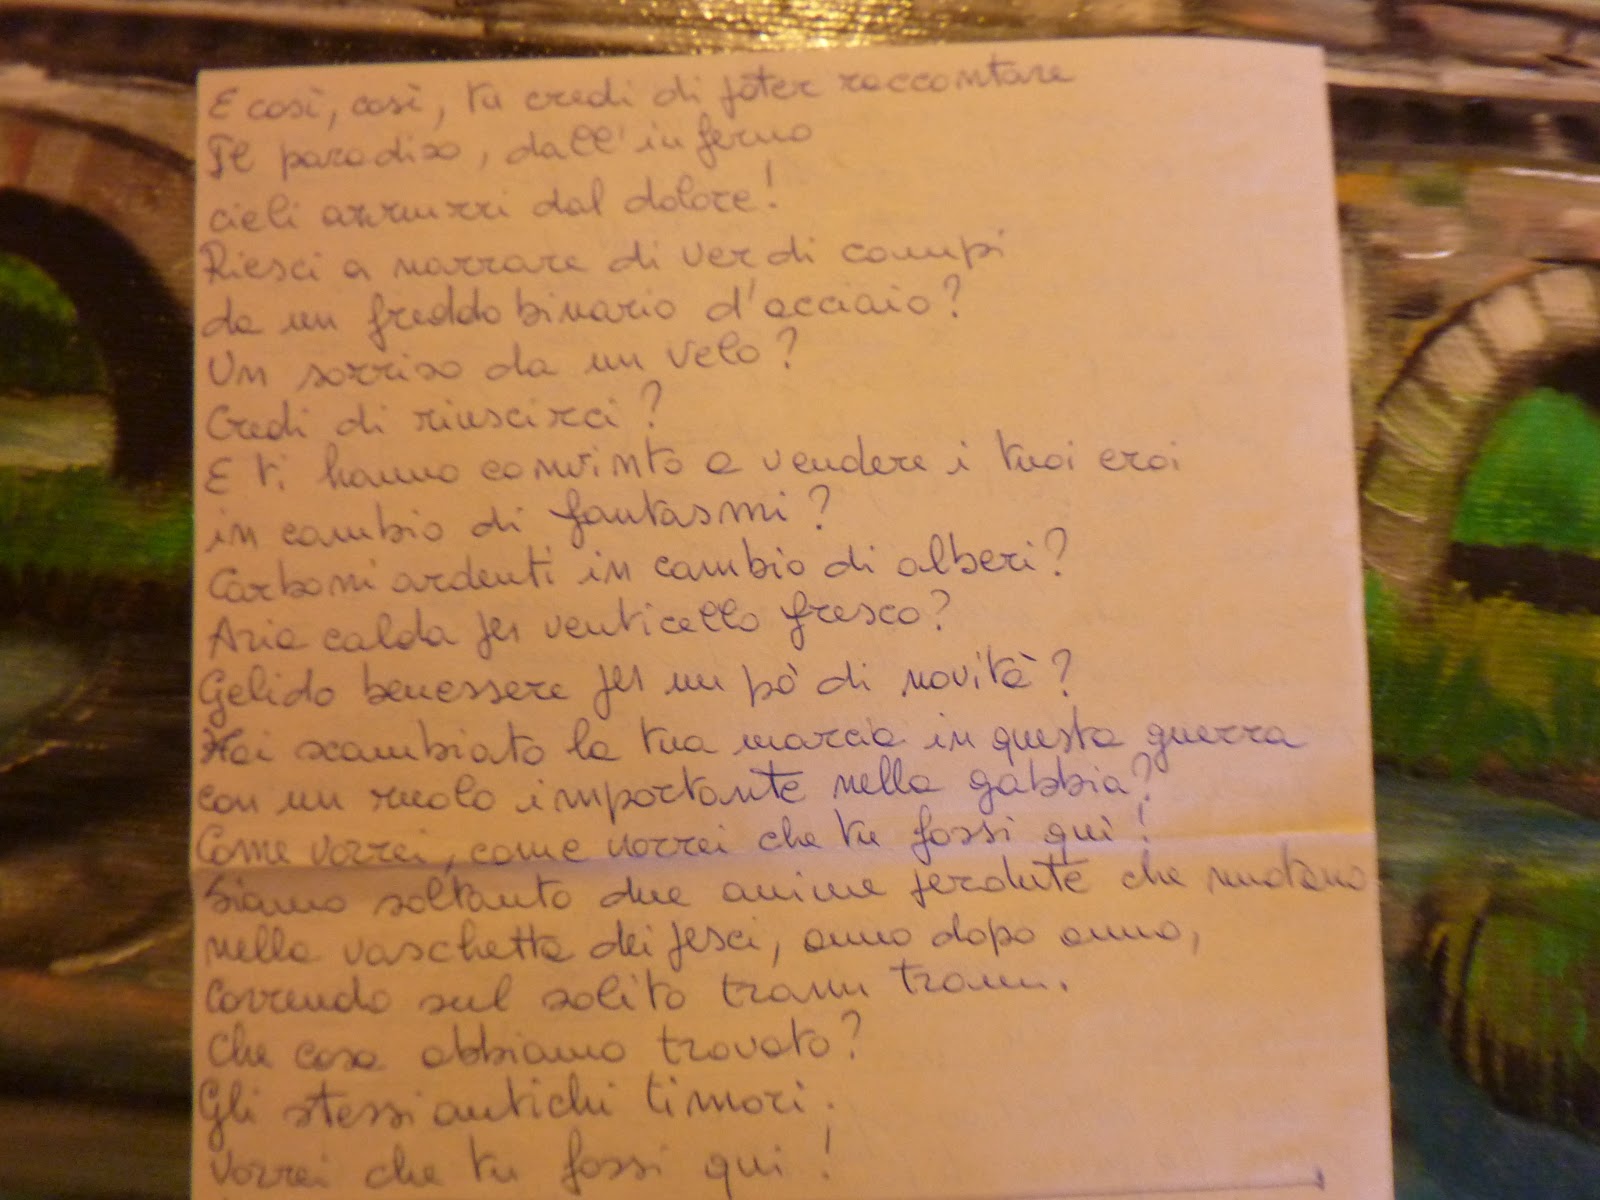 E così, così, tu credi di poter raccontare
Il paradiso, dall'inferno
cieli azzurri dal dolore!
Riesci a narrare di verdi campi
da un freddo binario d'acciaio?
Un sorriso da un velo?
Credi di riuscirci?
E ti hanno convinto a vendere i tuoi eroi
in cambio di fantasmi?
Carboni ardenti in cambio di alberi?
Aria calda per venticello fresco?
Gelido benessere per un pò di novità?
Hai scambiato la tua marcia in questa guerra
con un ruolo importante nella gabbia?
Come vorrei, come vorrei che tu fossi qui!
Siamo soltanto due anime perdute che nuotano
nella vaschetta dei pesci, anno dopo anno,
Correndo sul solito tram tram.
Che cosa abbiamo trovato?
Gli stessi antichi timori.
Vorrei che tu fossi qui!